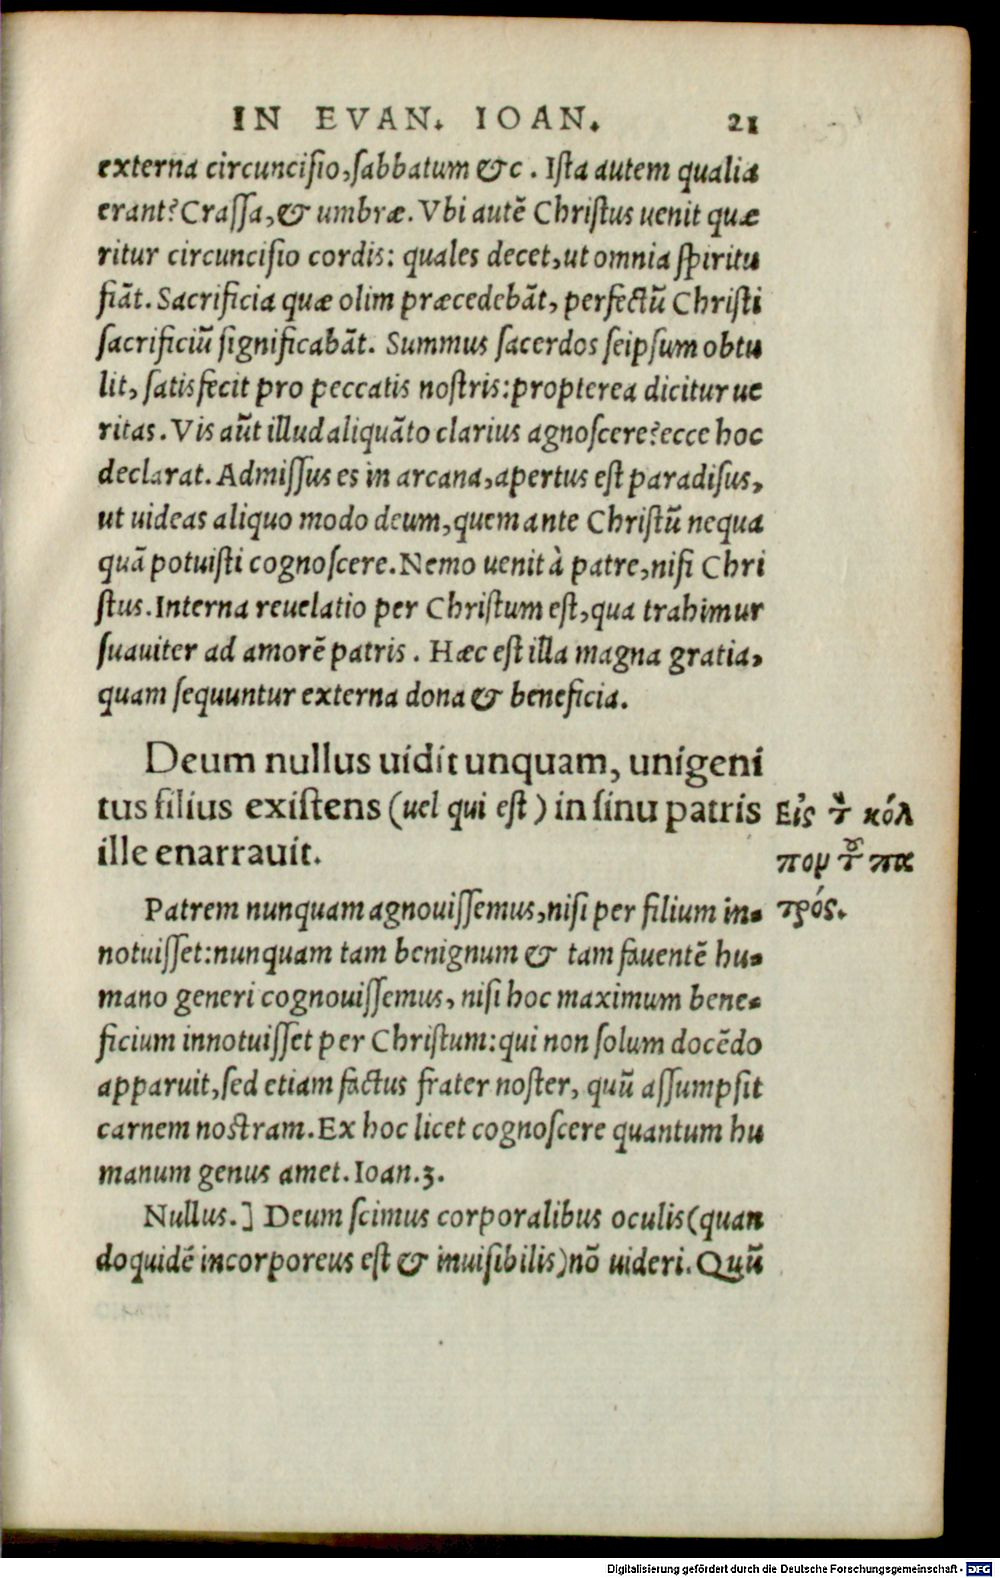 IN EVAN. IOAN. 21
externa circuncisio, sabbatum &c. Ista autem qualia
erant? Crassa, & umbræ. Vbi autē Christus uenit quæ
ritur circuncisio cordis: quales decet, ut omnia spiritu
fiāt. Sacrificia quæ olim præcedebāt, perfectū Christi
sacrificiū significabāt. Summus sacerdos seipsum obtu
lit, satisfecit pro peccatis nostris: propterea dicitur ue
ritas. Vis aūt illud aliquāto clarius agnoscere? ecce hoc
declarat. Admissus es in arcana, apertus est paradisus,
ut uideas aliquo modo deum, quem ante Christū nequa
quā potuisti cognoscere. Nemo uenit à patre, nisi Chri
stus. Interna reuelatio per Christum est, qua trahimur
suauiter ad amorē patris. Hæc est illa magna gratia,
quam sequuntur externa dona & beneficia.
Deum nullus uidit unquam, unigeni
tus filius existens (uel qui est) in sinu patris
ille enarrauit.
Εἰς τ̀ κόλ
πομ τȣ̃ πα
τρός.
Patrem nunquam agnouissemus, nisi per filium in-
notuisset: nunquam tam benignum & tam fauentē hu-
mano generi cognouissemus, nisi hoc maximum bene-
ficium innotuisset per Christum: qui non solum docēdo
apparuit, sed etiam factus frater noster, quū assumpsit
carnem nostram. Ex hoc licet cognoscere quantum hu
manum genus amet. Ioan.3.
Nullus.] Deum scimus corporalibus oculis (quan
doquidē incorporeus est & inuisibilis) nō uideri. Quū
Digitalisierung gefördert durch die Deutsche Forschungsgemeinschaft - DFG